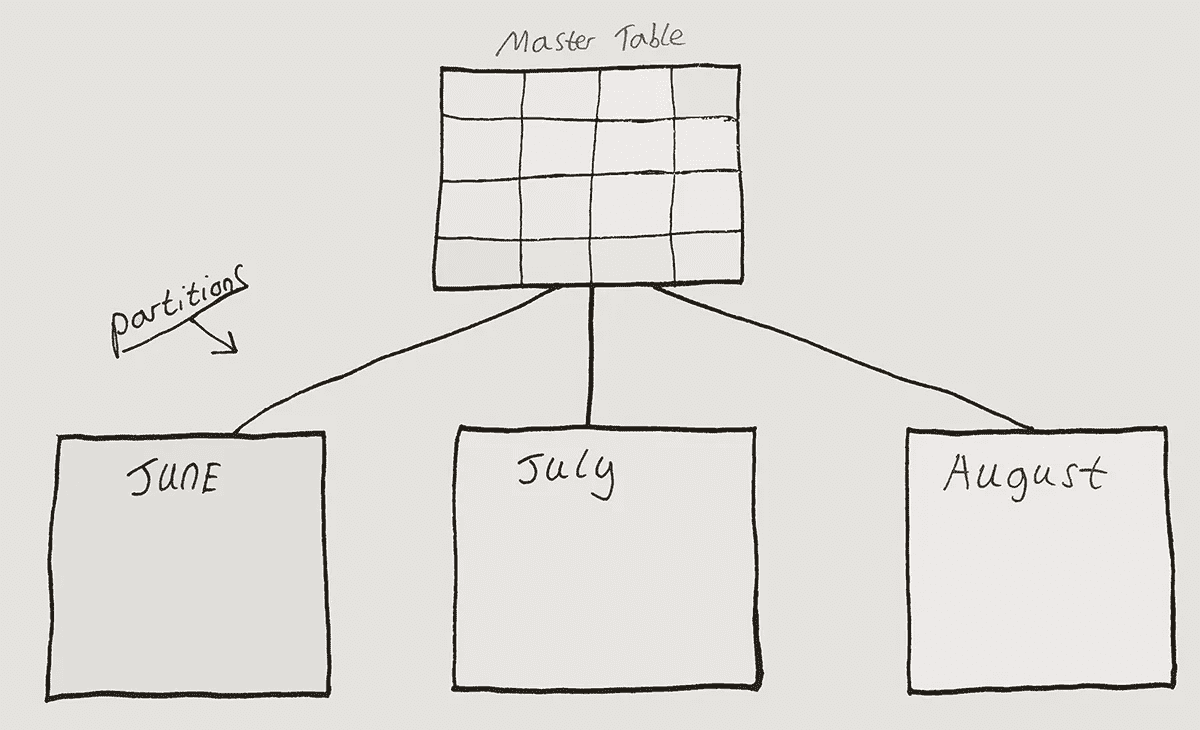 Master Table
partitions
JUNE
July
August